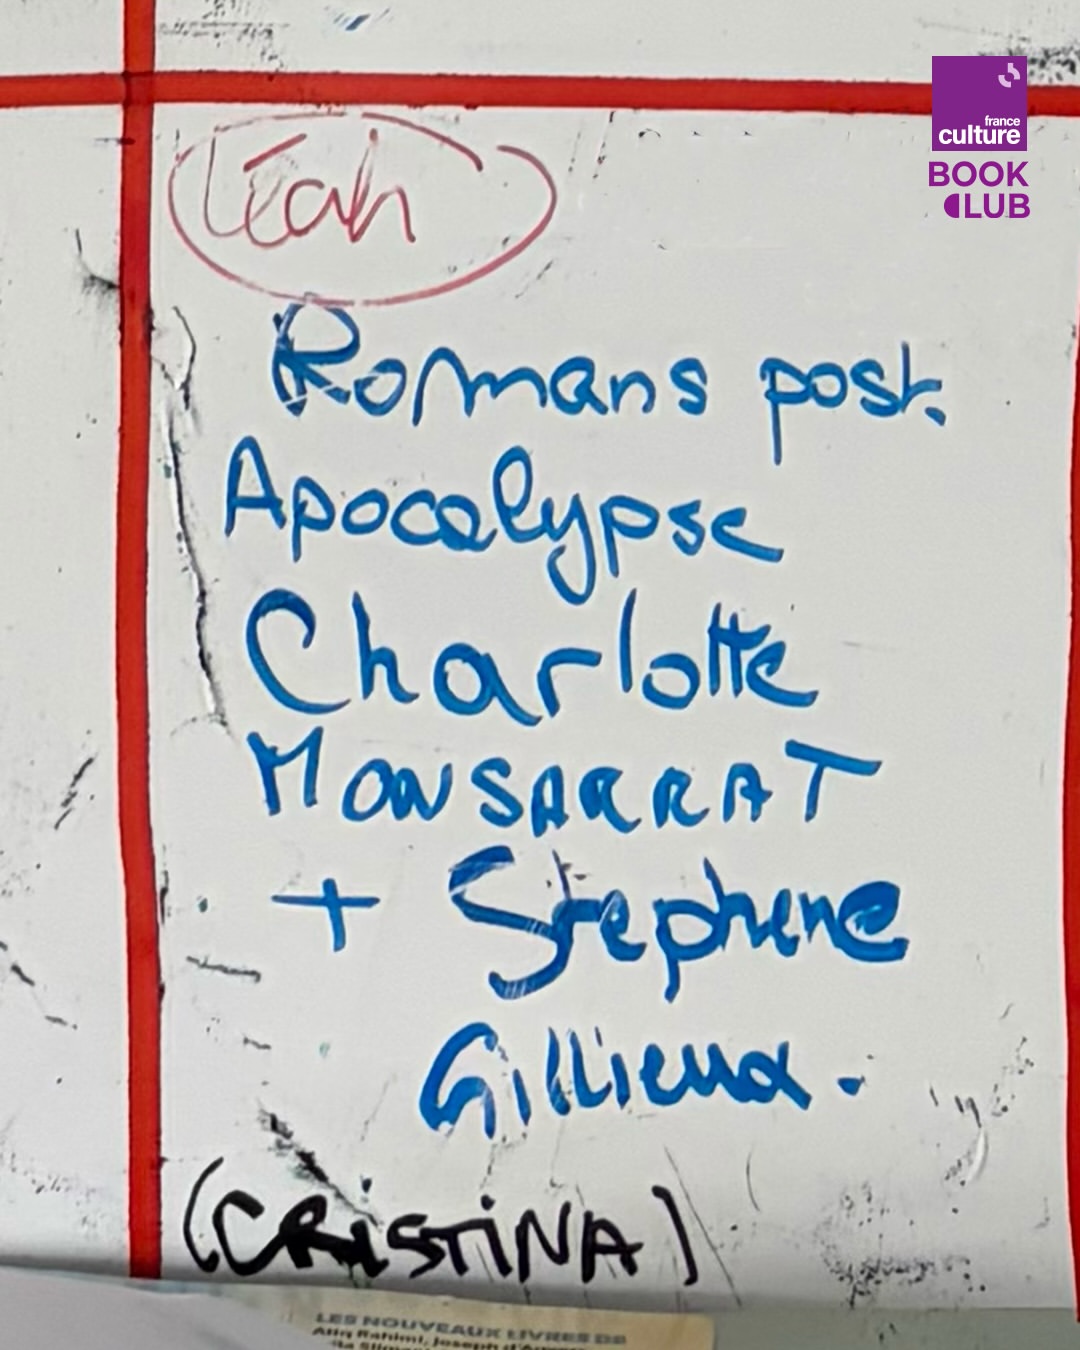 france
culture
BOOK
CLUB
Leah
Romans post.
Apocalypse
Charlotte
MONSARRAT
+ Stephene
Gillieux.
(CRISTINA)
LES NOUVEAUX LIVRES DE
Atiq Rahimi, Joseph